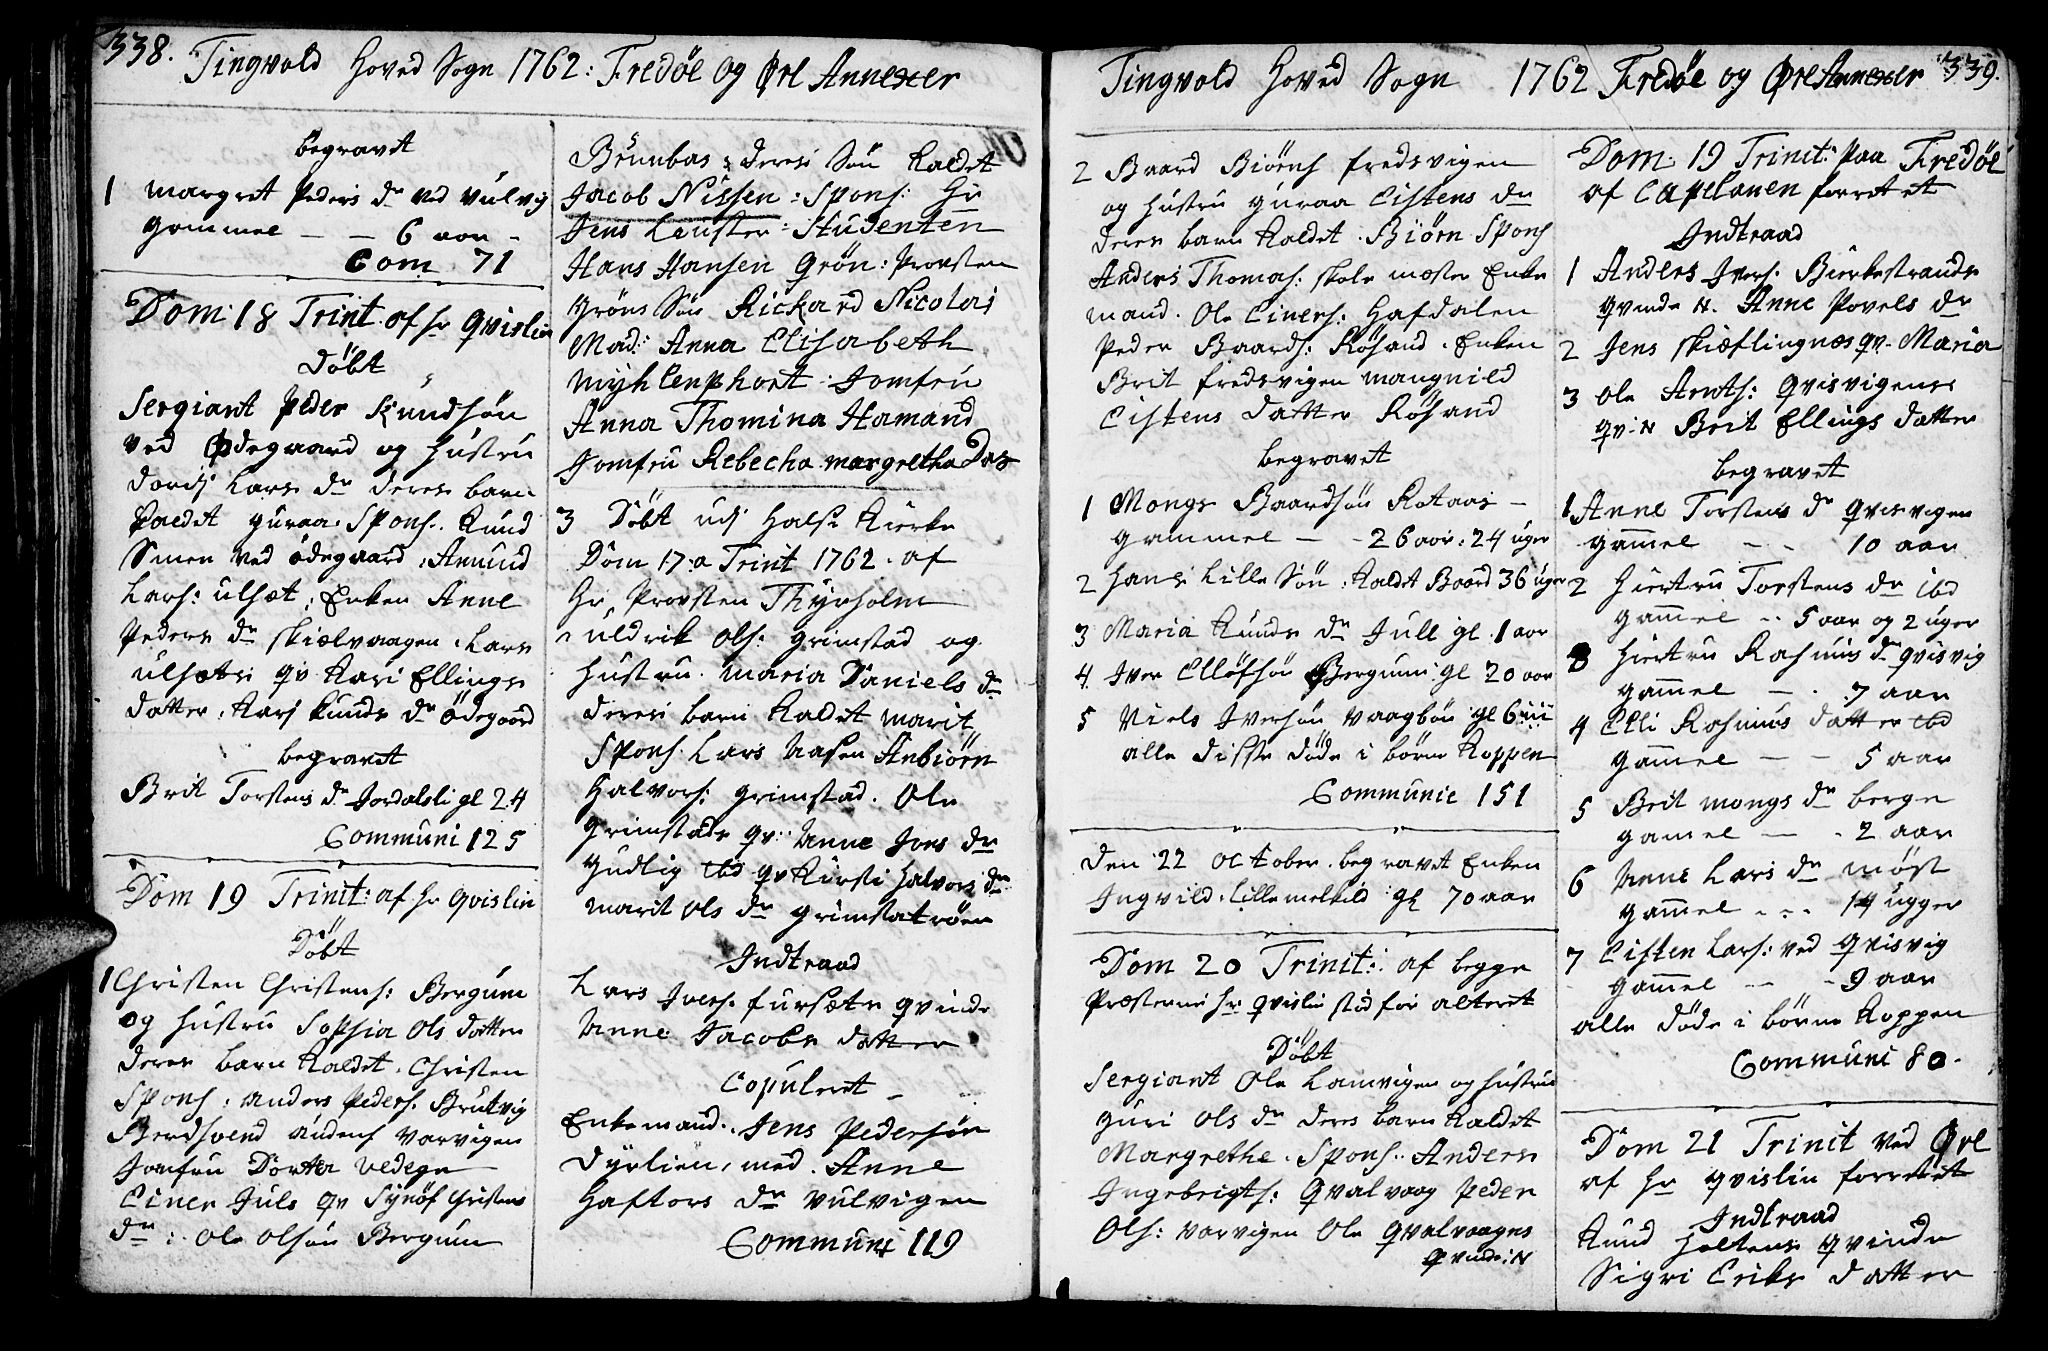 338. Tingvold Hoved Sogn 1762: Fredøe og Øre Annexer
begravet
1 margret Peders dr ved Vulvig
gammel — — 6 aar —
Com 71
Dom: 18 Trinit: af hr Qvislin
Døbt
Sergiant Peder Knudsøn
ved Ødegaard og Hustru
Lars dr deres barn
Kaldet guraa. Spons: Knud
ved ødegaard, Amund
Lars: ulset, Enken Anne
Peders dr skielvaagen. Lars
ulsets qv Kari Ellings
datter. Kari Knuds dr Ødegaard
begravet
Brit Torstens dr Jordalsli gl 24
Communi 125
Dom 19 Trinit: af hr Qvislin
Døbt
1 Christen Christens: Bergum
og Hustru Sophia Ols datter
deres barn Kaldet. Christen
Spons: Anders Peders. Brutvig
Anders Varvigen
Jomfru Dorter vedege
Einer Juls qv Synøf Christens
dr: Ole Olsøn Bergum
deres Søn Kaldet
Jacob Nissen: Spons: Hr
Jens Leuster: Studenten
Hans Hansen Grøn: Provsten
Grøns Søn Rickard Nicolai
Mad: Anna Elisabeth
Myhlenphort. Jomfru
Anna Thomina Hamand
Jomfru Rebecha margretha Das
3 Døbt udj Halse Kierke
Dom 17. a Trinit 1762. af
Hr. Provsten Thyrholm
uldrik Ols: grimstad og
Hustru. maria Daniels dr
deres barn Kaldet marit
Spons. Lars Aasen Anbiørn
Halvors: grimstad. Ole
Grimstads qv: Anne Jons dr
Gudlig ibd qv Kirsti Halvors dr
marit Ols dr grimstatrøen
Indtraad
Lars Ivers. fursæts qvinde
Anne Jacobs datter
Copuleret
Enkemand. Jens Pedersøn
Dyrlien, med. Anne
Haftors dr Vulvigen
Communi 119
Tingvold Hoved Sogn 1762 Fredøe og Øre Annexer 339.
2 Baard Biørns fredsvigen
og Hustru guraa Eistens dr
deres barn Kaldet. Biørn Spons
Anders Thomas: skole mester Enke
mand. Ole Einers: Hafdalen
Peder Baards: Røsand. Enken
Brit fredsvigen mangnild
Eistens datter Røsand
begravet
1 Mongs Baardsøn Rotaas —
gammel — - 26 aar: 24 uger
2 Hans Lille Søn. Kaldet Baard 36 uger
3 Maria Knuds dr Jull gl. 1 aar
4 Iver Elløfsøn Bergum gl 20 aar
5 Niels Iversøn Vaagbøn gl 6
alle disse døde i børne Koppen
Communic 151
Den 22 October. begravet Enken
Ingvild. Lille melkild gl 70 aar
Dom 20 Trinit: af begge
Præsterne hr: Qvislin stod for alteret
Døbt
Sergiant Ole Lamvigen og Hustru
guri Ols dr deres barn Kaldet
Margrethe. Spons: Anders
Ingebrigts: Qvalvaag Peder
Ols: Varvigen Ole Qvalvaagens
Qvinde: N
Dom: 19 Trinit: paa Fredøe
af Capelanen forrettet
Indtraad
1 Anders Ivers: Bierkestrands
qvinde N. Anne Povels dr
2 Jens skieflingnes qv. Maria
3 Ole Arnts: Qvisvigens
qv: N Brit Ellings datter
begravet
1 Anne Torstens dr qvisvigen
gammel — - 10 aar
2 Hiertru Torstens dr ibd
gammel - 5 aar og 2 uger
3 Hiertru Rasmus dr qvisvig
gammel — . 7 aar
4 Elli Rasmus datter ibd
gammel — — 5 aar
5 Brit mongs dr berge
gamel — - 2 aar
6 Anne Lars dr møst
gammel - - - 14 ugger
7 Eisten Lars: ved qvisvig
gammel — - 9 aar
alle døde i børne Koppen
Communi 80.
Dom 21 Trinit ved Øre
af hr qvislin forrettet
Indtraad
Knud Holtens qvinde
Sigri Eriks datter